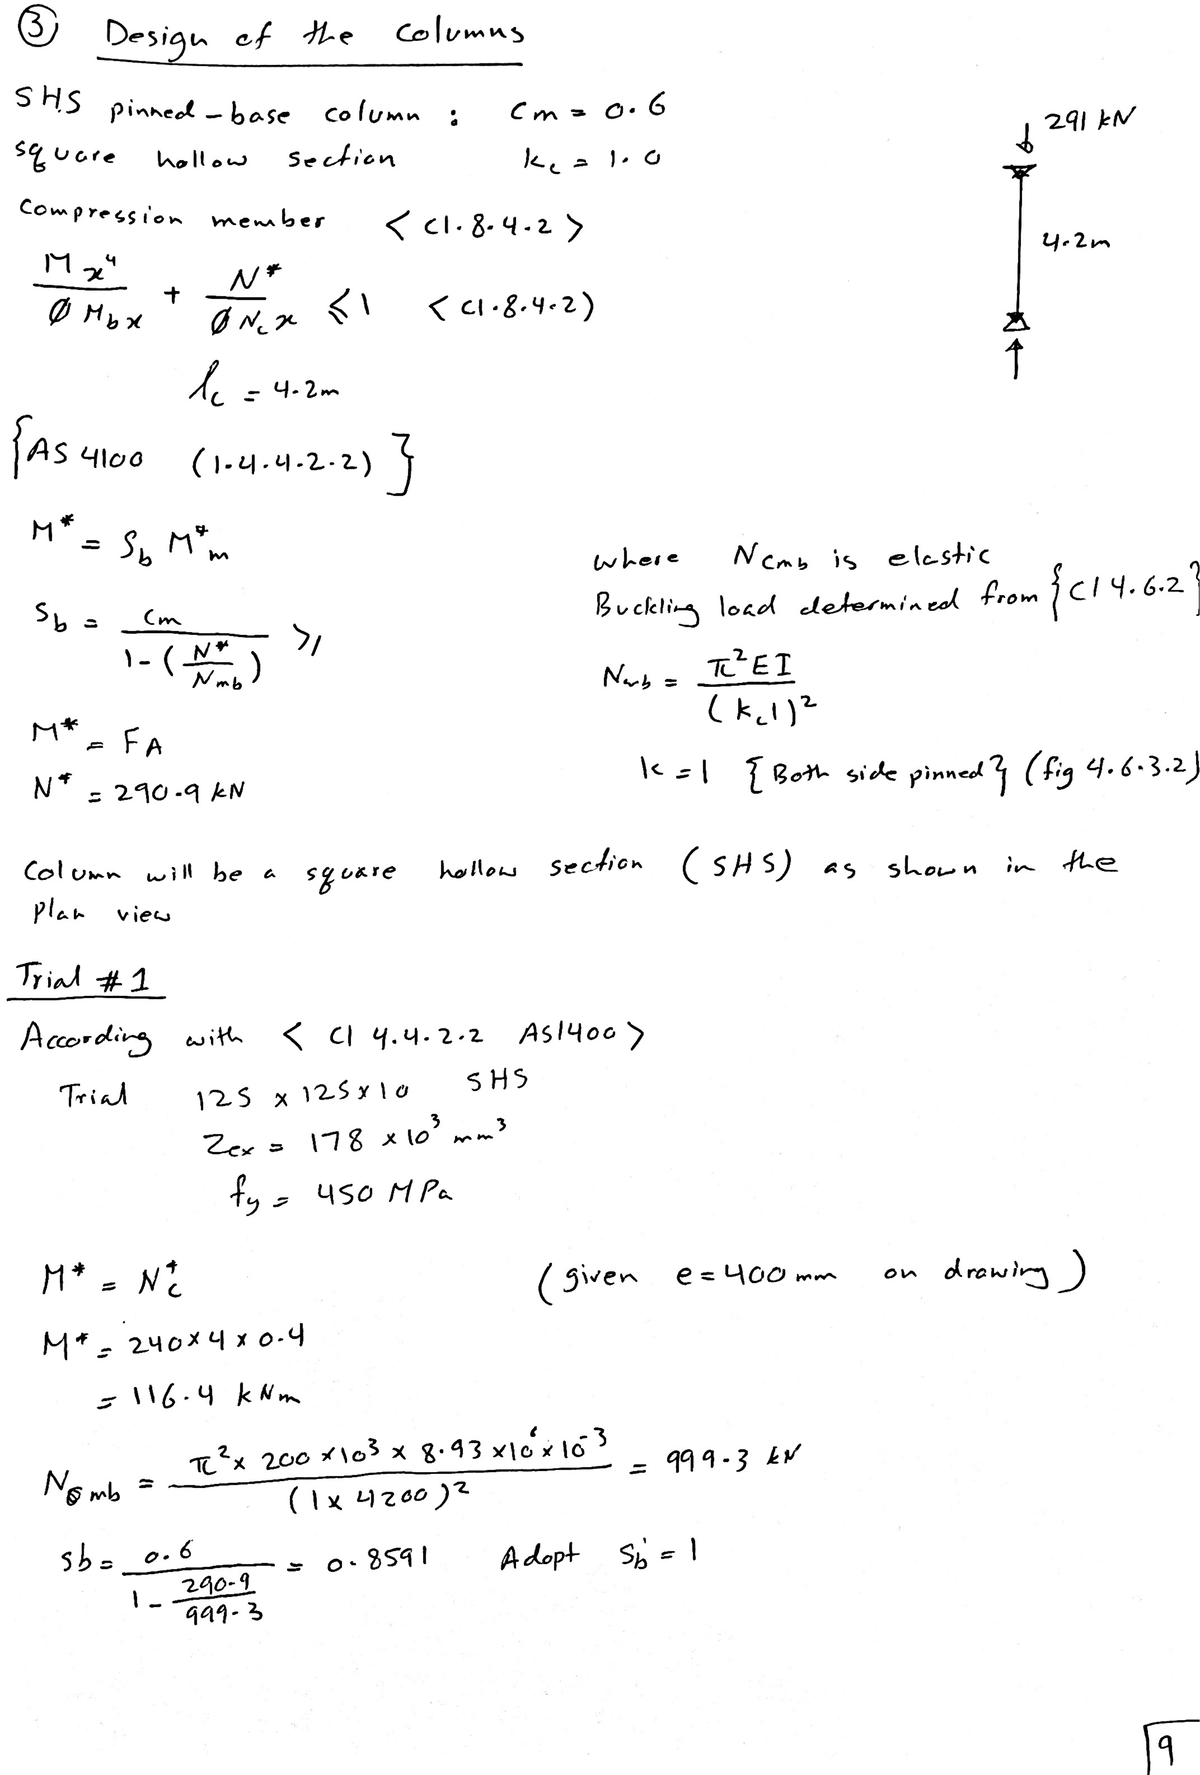 ③ Design of the columns
SHS pinned-base column : Cm = 0.6
square hollow section kc = 1.0
291 kN
4.2m
Compression member < Cl.8.4.2 >
Mx* / Ø Mbx + N* / Ø Ncx ≤ 1 < Cl.8.4.2)
lc = 4.2m
{AS 4100 (1.4.4.2.2)}
M* = Sb M*m
Sb = Cm / 1-(N* / Nmb) ≥
M* = FA
N* = 290.9 kN
where Ncmb is elastic
Buckling load determined from {Cl 4.6.2}
Nmb = π²EI / (kcl)²
k = 1 {Both side pinned} (fig 4.6.3.2)
Column will be a square hollow section (SHS) as shown in the
plan view
Trial #1
According with < Cl 4.4.2.2 AS1400 >
Trial 125 x 125 x 10 SHS
Zex = 178 x 10³ mm³
fy = 450 MPa
M* = N*c (given e = 400 mm on drawing)
M* = 240 x 4 x 0.4
= 116.4 kNm
Nomb = π² x 200 x 10³ x 8.93 x 10⁶ x 10⁻³ / (1 x 4200)² = 999.3 kN
sb = 0.6 / 1 - 290.9 / 999.3 = 0.8591 Adopt Sb = 1
9